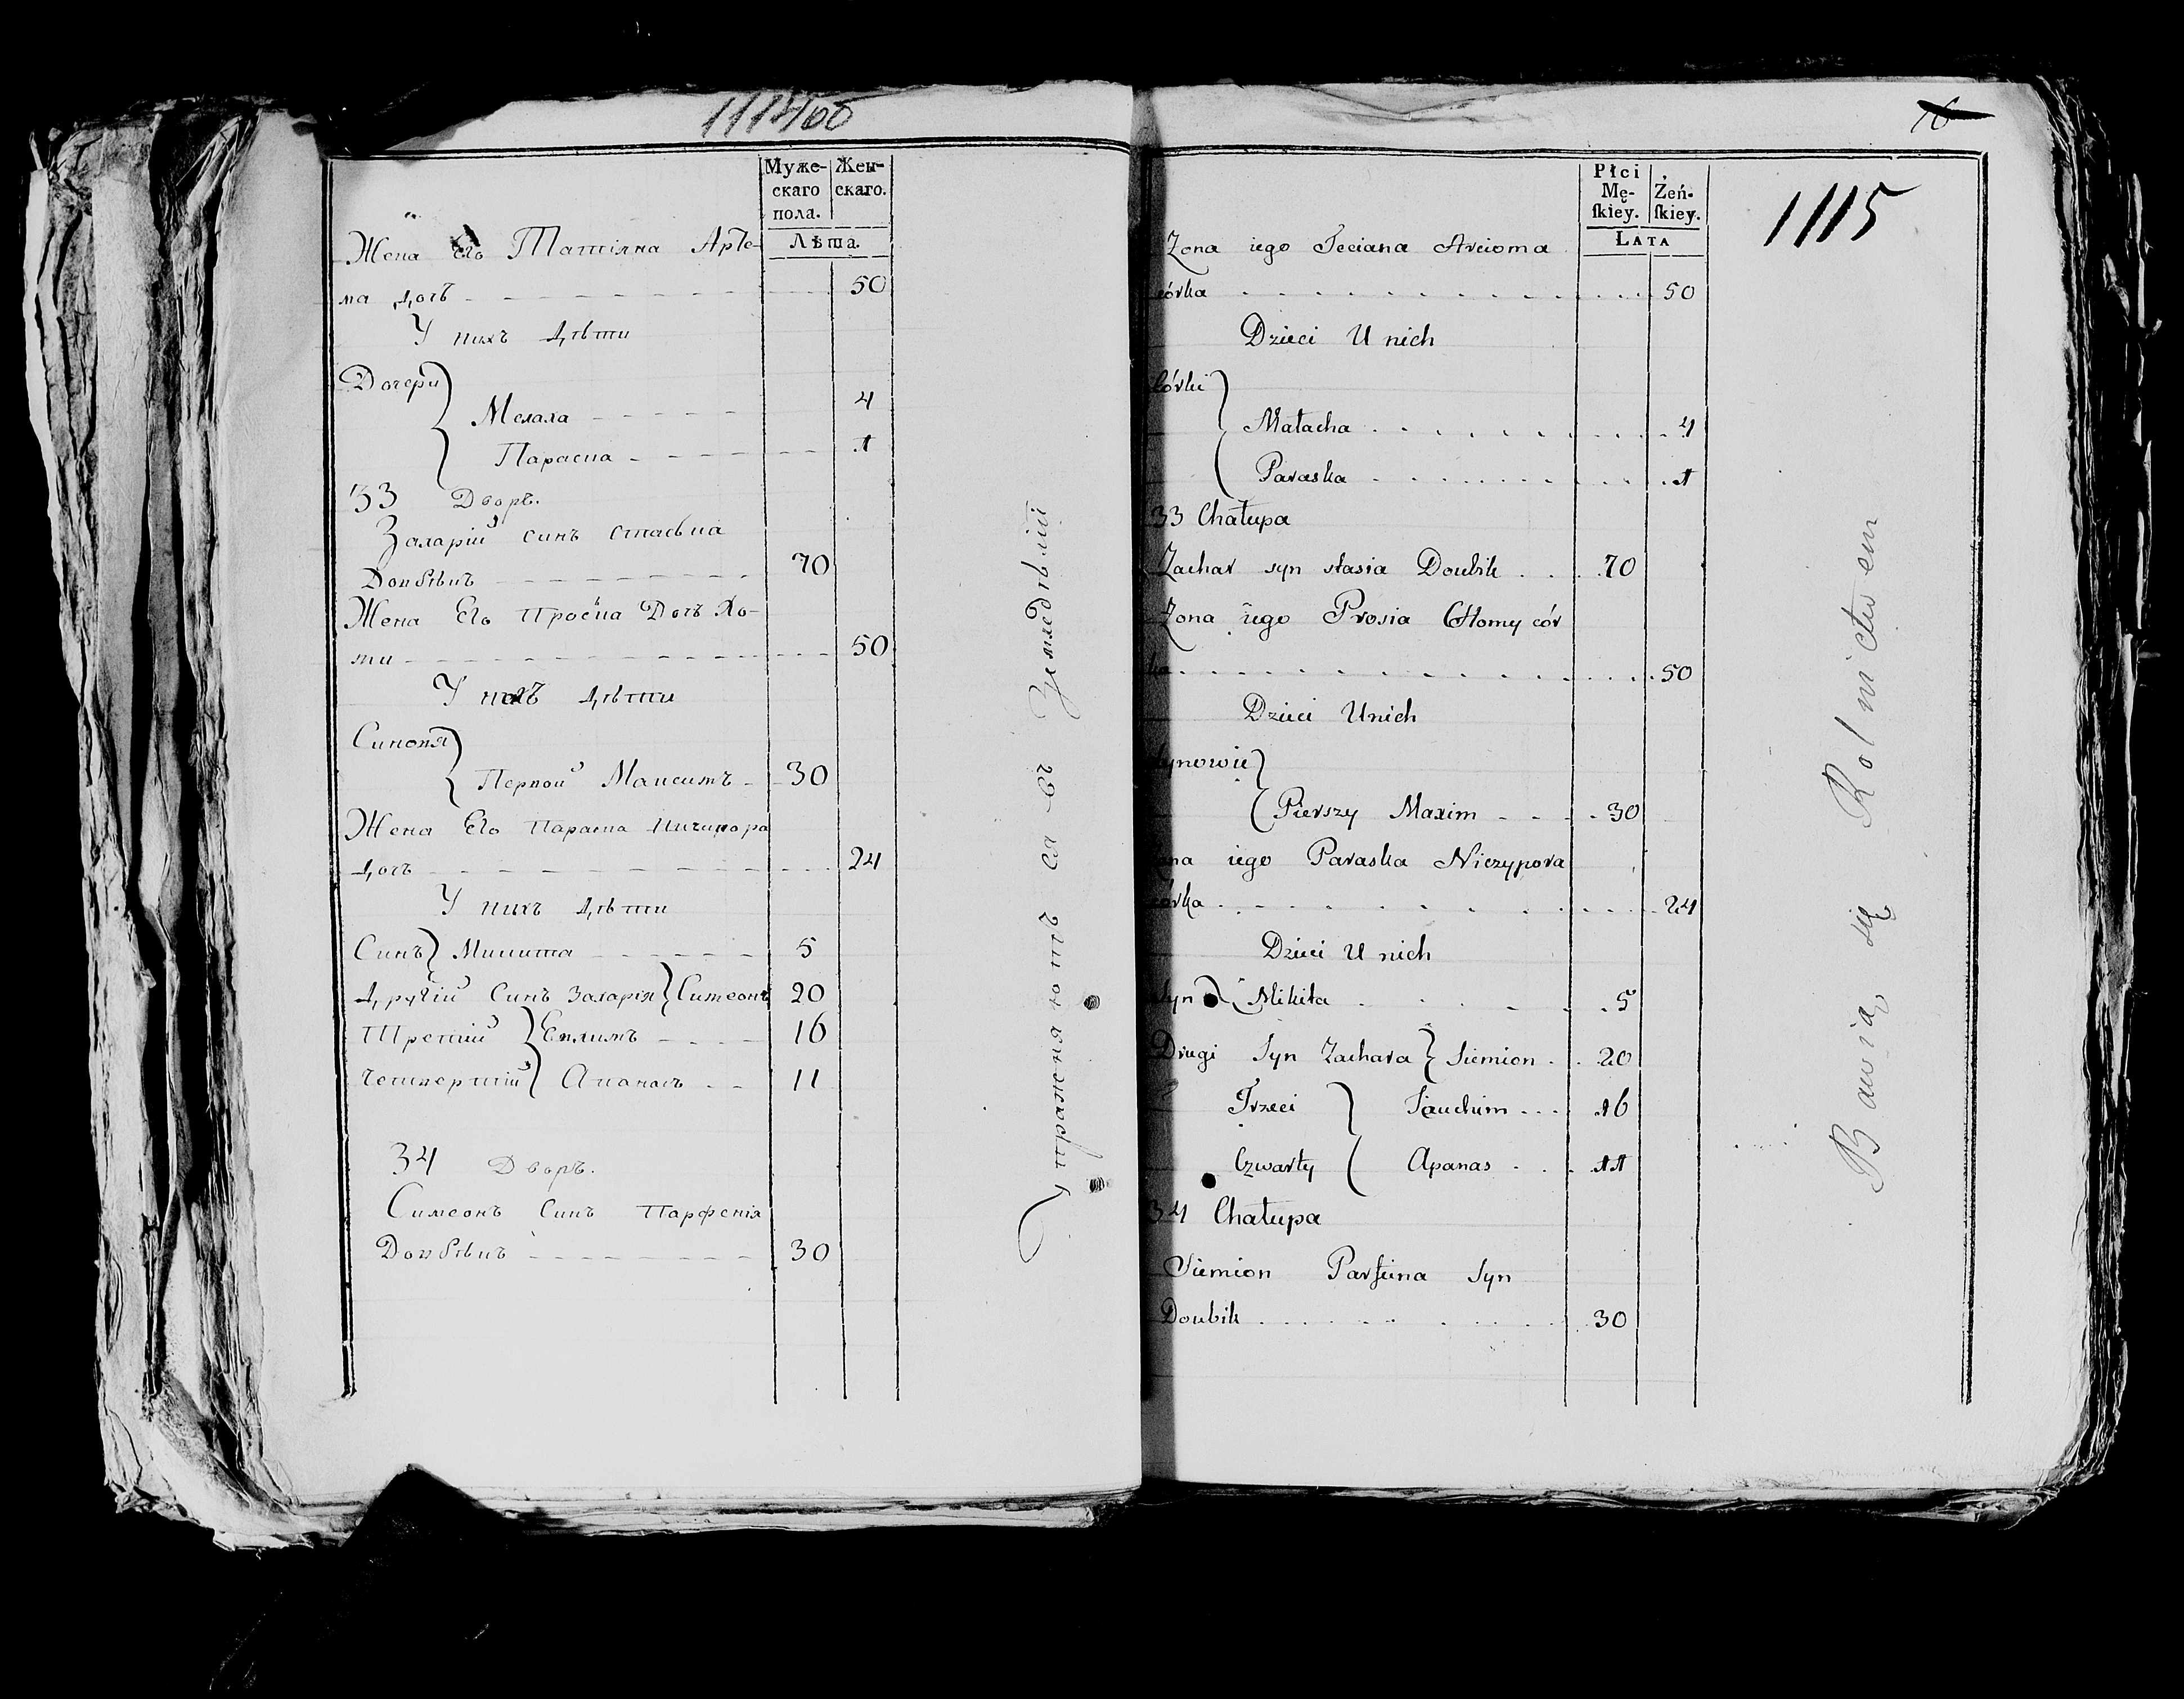 Муже-
скаго
пола.
Жен-
скаго.
Лѣта.
Жена Его Татіяна Арте-
ма дочь 50
У нихъ дѣти
Дочери
Мелаха 4
Параска 1
33 Дворъ.
Захарій синъ стасъка
Довбѣкъ 70
Жена Его Проска Дочь Хо-
ми 50
У нихъ дѣти
Синовя
Первой Максимъ 30
Жена Его Параска Ничипора
дочь 24
У нихъ дѣти
Синъ Микита 5
Другій Синъ Захарія Симеонъ 20
Третій 16
Четвертій Апанасъ 11
34 Дворъ.
Симеонъ Синъ Парфенія
Довбѣкъ 30
Упражняютъ ся въ
Płci
Mę-
ſkiey.
Żeń-
ſkiey.
LATA
1115
Zona iego Teciana Arcioma
córka 50
Dzieci U nich
Córki
Małacha 4
Paraska 1
33 Chałupa
Zachar syn stasia Doubik 70
Zona iego Prosia Chomy cór
ka 50
Dzieci Unich
Synowie
Pierszy Maxim 30
Zona iego Paraska Niczypora
córka 24
Dzieci U nich
Syn Mikita 5
Drugi Syn Zachara Siemion 20
Trzeci Jauchim 16
Czwarty Apanas 11
34 Chałupa
Siemion Parfiena Syn
Doubik 30
Bawią się Rolnictwem